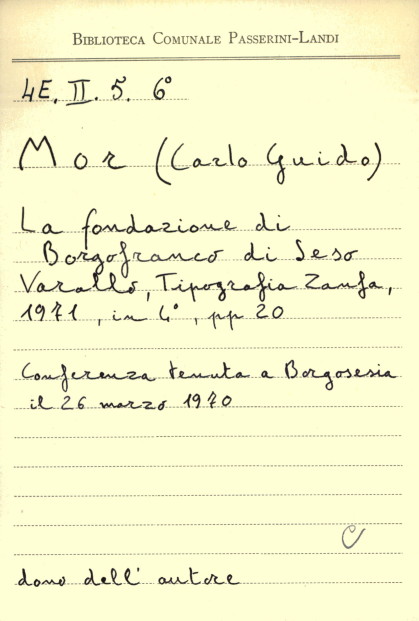 BIBLIOTECA COMUNALE PASSERINI-LANDI
4E. II. 5. 6°
Mor (Carlo Guido)
La fondazione di
Borgofranco di Seso
Varallo, Tipografia Zanfa,
1971, in 4°, pp 20
Conferenza tenuta a Borgosesia
il 26 marzo 1970
C
dono dell' autore